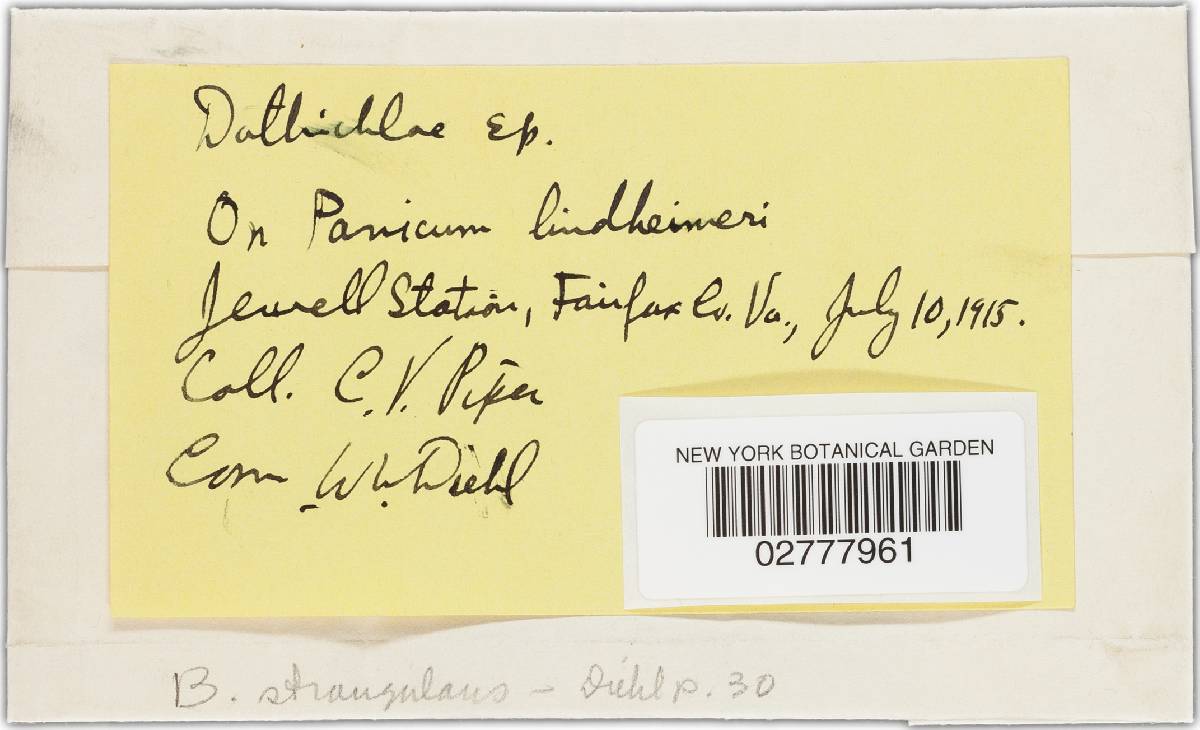 Dothichloe sp.
On Panicum lindheimeri
Jewell Station, Fairfax Co. Va., July 10, 1915.
Coll. C. V. Piper
Com W W Diehl
NEW YORK BOTANICAL GARDEN
02777961
B. strangulans - Diehl p. 30